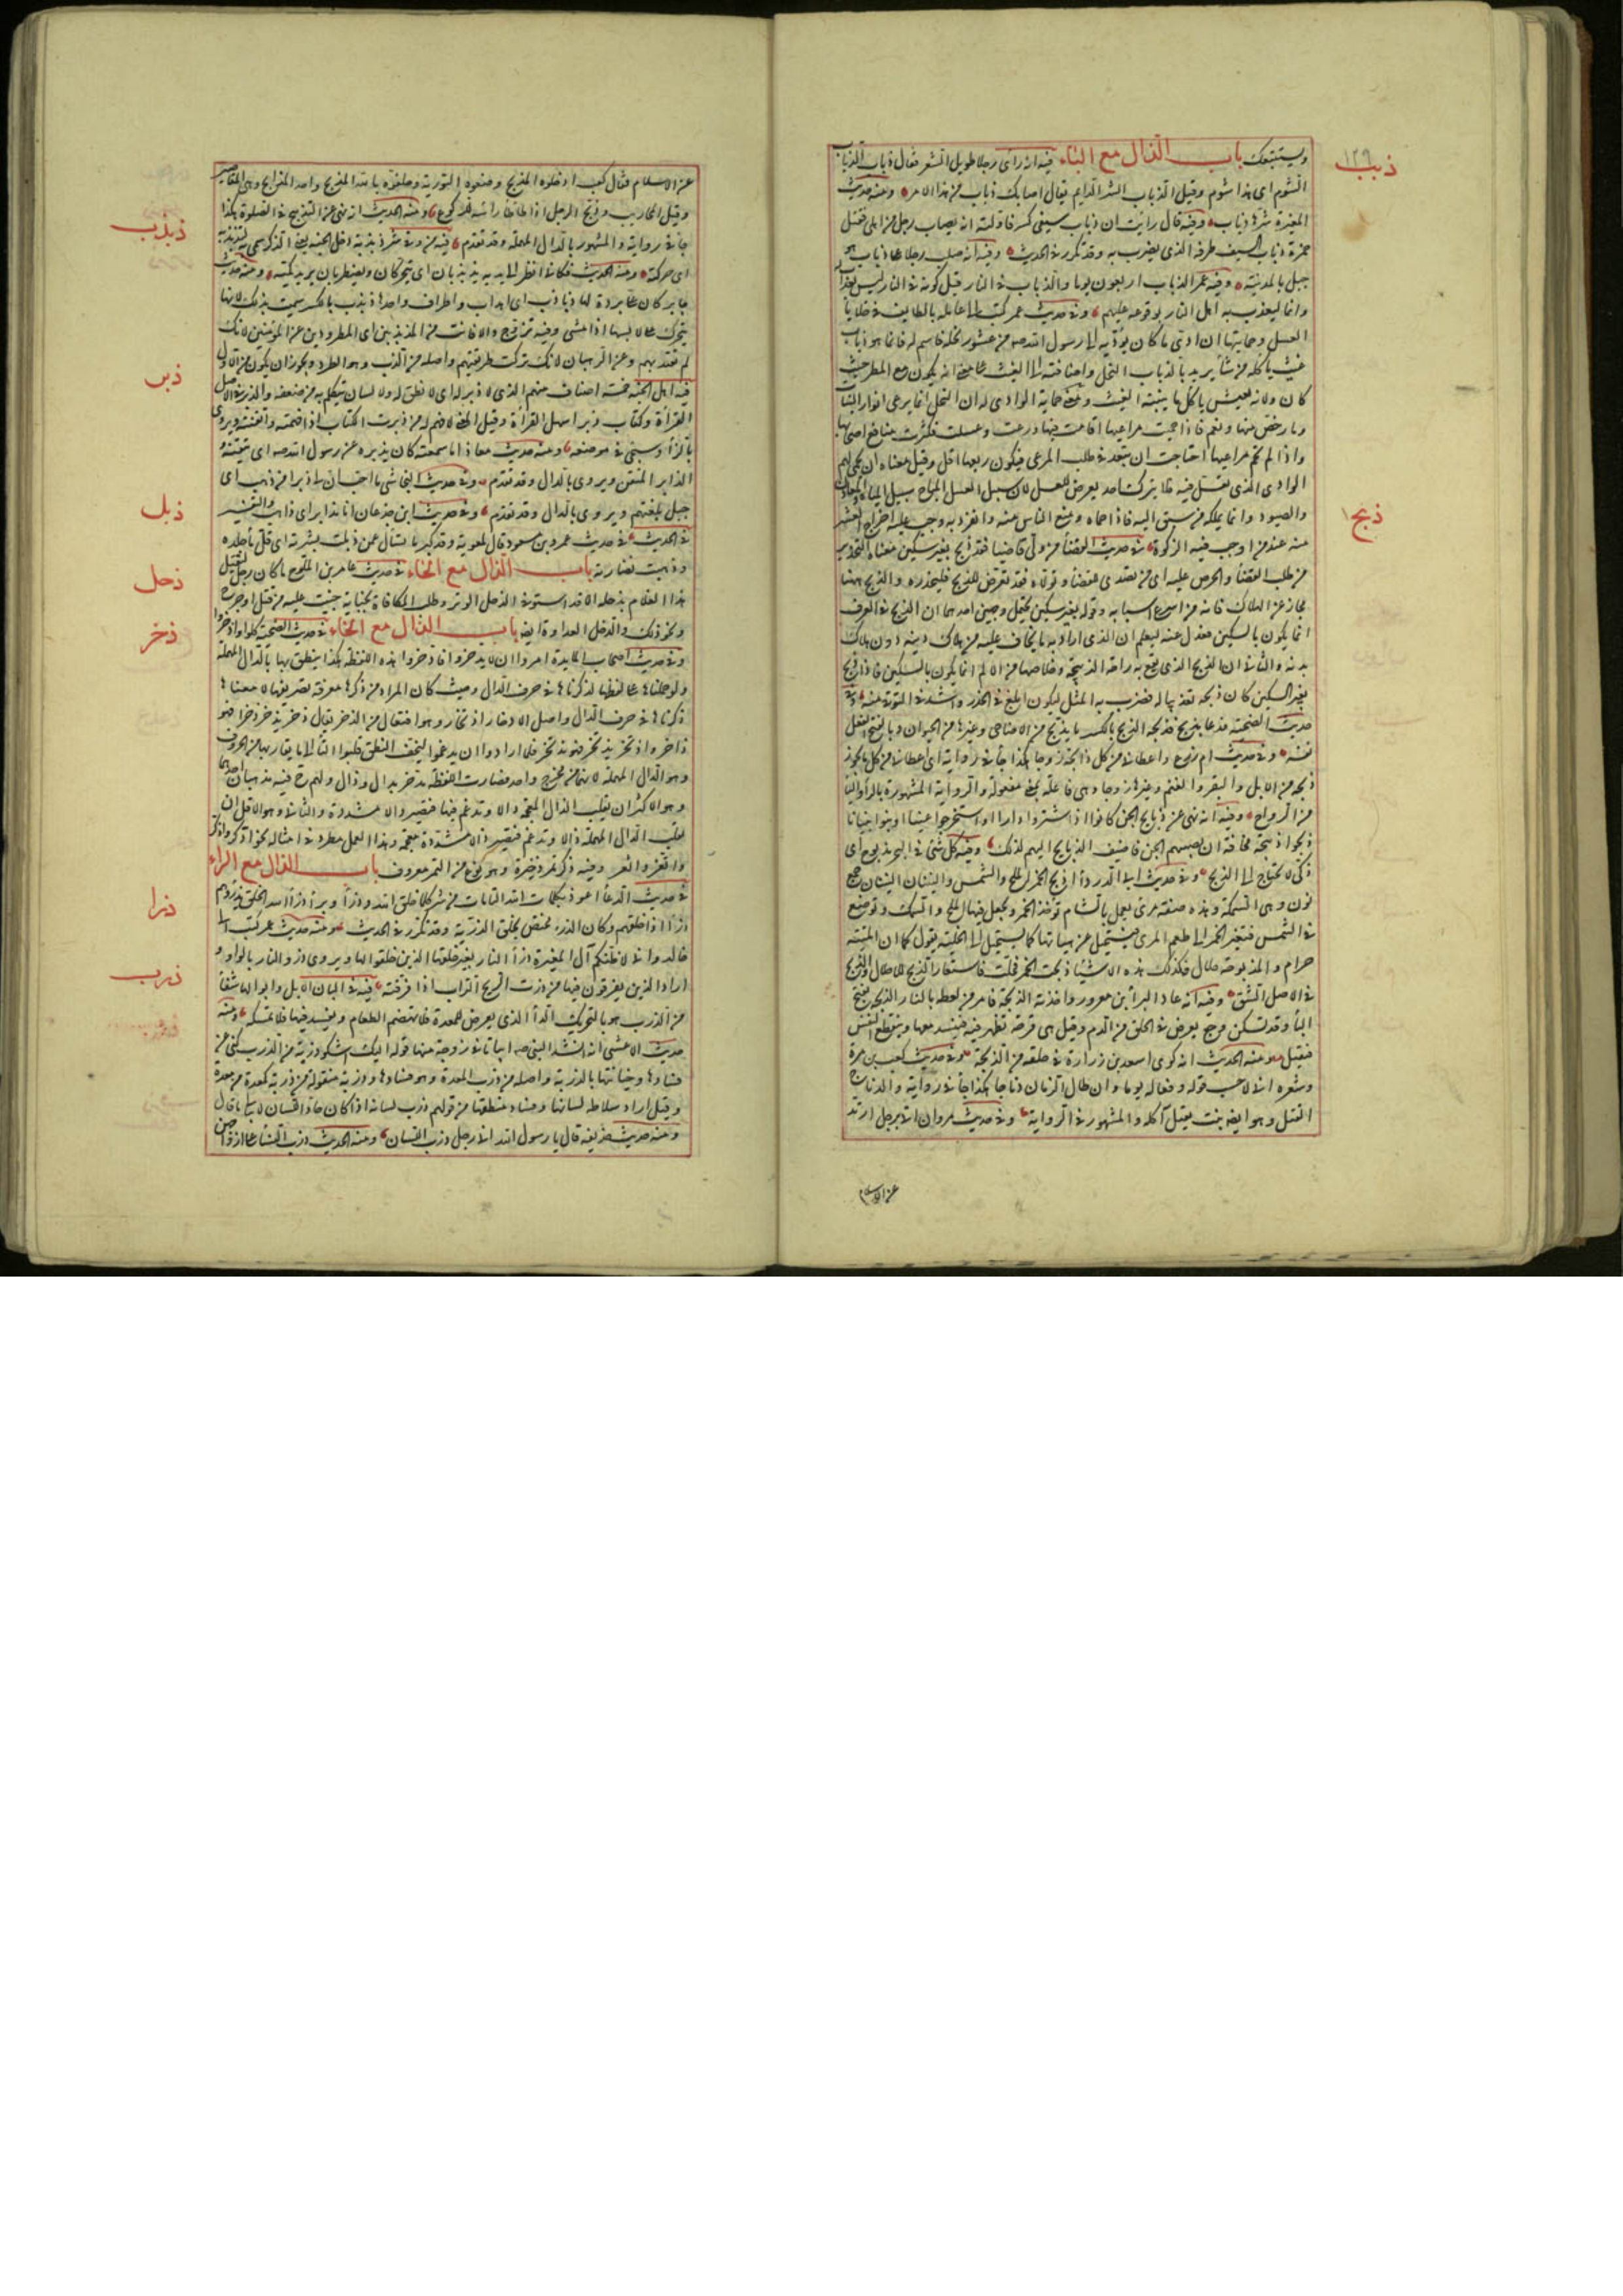 ذبب
ويستتبعك باب الذال مع الباء فيه انه رأى رجلا طويل الشعر فقال ذباب الذباب
الشوم اى هذا شوم وقيل الذباب الشر الدايم يقال اصابك ذباب من هذا الامر ومنه حديث
المغيرة شرها ذباب وفيه قال رايت ان ذباب سيفى كسر فاولته انه يصاب رجل من اهلى فقتل
حمزة ذباب السيف طرفه الذى يضرب به وقد تكرر فى الحديث وفيه انه صلب رجلا على ذباب هو
جبل بالمدينة وفيه عمر الذباب اربعون يوما والذباب فى النار قيل كونه فى النار ليس بعذاب
وانما ليعذب به اهل النار بوقوعه عليهم وفى حديث عمر كتب الى عامله بالطايف فى خلايا
العسل وحمايتها ان ادى ما كان يؤديه الى رسول الله صه من عشور نحله فاحم له فانما هو ذباب
غيث ياكله من شاء يريد بالذباب النحل واضافته الى الغيث على معنى انه يكون مع المطر حيث
كان ولانه يعيش باكل ما ينبته الغيث ومعنى حماية الوادى له ان النحل انما يرعى انوار النبات
وما رخص منها ونعم فاذا حميت مراعيها اقامت فيها ورعت وعسلت فكثرت منافع اصحابها
واذا لم تحم مراعيها احتاجت ان تبعد فى طلب المرعى فيكون ريعها اقل وقيل معناه ان يحمى لهم
الوادى الذى تعسل فيه فلا يترك احد يعرض للعسل لان سبيل العسل المباح سبيل المياه والمعادن
والصيود وانما يملكه من سبق اليه فاذا حماه ومنع الناس منه وانفرد به وجب عليه اخراج العشر
ذبح
منه عند من اوجب فيه الزكوة فى حديث القضاء من ولى قاضيا فقد ذبح بغير سكين معناه التحذير
من طلب القضاء والحرص عليه اى من تصدى للقضاء وتولاه فقد تعرض للذبح فليحذره والذبح ههنا
مجاز عن الهلاك فانه من اسرع اسبابه وقوله بغير سكين يحتمل وجهين احدهما ان الذبح فى العرف
انما يكون بالسكين فعدل عنه ليعلم ان الذى اراد به ما يخاف عليه من هلاك دينه دون هلاك
بدنه والثانى ان الذبح الذى يقع به راحة الذبيحة وخلاصها من الالم انما يكون بالسكين فاذا ذبح
بغير السكين كان ذبحه تعذيبا له فضرب به المثل ليكون ابلغ فى الحذر واشد فى التوقى منه وفى
حديث الضحية فدعا بذبح فذبحه الذبح بالكسر ما يذبح من الاضاحى وغيرها من الحيوان وبالفتح الفعل
نفسه وفى حديث ام زرع واعطانى من كل ذابحة زوجا هكذا جاء فى رواية اى اعطانى من كل ما يجوز
ذبحه من الابل والبقر والغنم وغيرها زوجا وهى فاعلة بمعنى مفعولة والرواية المشهورة بالراء والياء
من الرواح وفيه انه نهى عن ذبايح الجن كانوا اذا اشتروا دارا او استخرجوا عينا او بنوا بنيانا
ذبحوا ذبيحة مخافة ان تصيبهم الجن فاضيف الذبايح اليهم لذلك وفيه كل شئ فى البحر مذبوح اى
ذكى لا يحتاج الى الذبح وفى حديث ابى الدرداء ذبح الخمر الملح والشمس والنينان النينان جمع
نون وهى السمكة وهذه صفة مرى يعمل بالشام تؤخذ الخمر ويجعل فيها الملح والسمك وتوضع
فى الشمس فتتغير الخمر الى طعم المرى فتستحيل عن هيأتها كما تستحيل الى الخلية يقول كما ان الميتة
حرام والمذبوحة حلال فكذلك هذه الاشياء ذبحت الخمر فحلت فاستعار الذبح للاحلال والذبح
فى الاصل الشق وفيه انه عاد البراء بن معرور واخذته الذبحة فامر من لعطه بالنار الذبحة بفتح
الباء وقد تسكن وجع يعرض فى الحلق من الدم وقيل هى قرحة تظهر فيه فينسد معها وينقطع النفس
فتقتل ومنه الحديث انه كوى اسعد بن زرارة فى حلقه من الذبحة وفى حديث كعب بن مرة
وشعره انى لاحسب قوله وفعاله يوما وان طال الزمان ذباحا هكذا جاء فى رواية والذباح
القتل وهو ايضا نبت يقتل آكله والمشهور فى الرواية وفى حديث مروان اتى برجل ارتد
عن الاسلام
عن الاسلام فقال كعب ادخلوه المذبح وضعوه التورية وحلفوه بالله المذبح واحد المذابح وهى المقاصير
وقيل المحاريب وذبح الرجل اذا طأطأ راسه للركوع ومنه الحديث انه نهى عن التذبيح فى الصلوة هكذا
ذبذب
جاء فى رواية والمشهور بالدال المهملة وقد تقدم فيه من وقى شر ذبذبه دخل الجنة يعنى الذكر سمى به لتذبذبه
اى حركته ومنه الحديث فكانى انظر الى يديه يذبذبان اى يتحركان ويضطربان يريد كميه ومنه حديث
جابر كان على بردة لها ذباذب اى اهداب واطراف واحدها ذبذب بالكسر سميت بذلك لانها
يتحرك على لابسها اذا مشى وفيه تزوج والا فانت من المذبذبين اى المطرودين عن المؤمنين لانك
لم تقتد بهم وعن الرهبان لانك تركت طريقتهم واصله من الذب وهو الطرد ويجوز ان يكون من الاول
ذبر
فيه اهل الجنة خمسة اصناف منهم الذى لا ذبر له اى لا نطق له ولا لسان يتكلم به من ضعفه والذبر فى الاصل
القراءة وكتاب ذبر اسهل القراءة وقيل المعنى لا فهم له من ذبرت الكتاب اذا فهمته واتقنته ويروى
بالزاء وسيجئ فى موضعه ومنه حديث معاذ اما سمعته كان يذبره عن رسول الله صه اى يتقنه
الذابر المتقن ويروى بالدال وقد تقدم وفى حديث النجاشى ما احب ان لى ذبرا من ذهب اى
جبل بلغتهم ويروى بالدال وقد تقدم وفى حديث ابن جدعان انا مذابر اى ذاهب والتفسير
ذبل
فى الحديث فى حديث عمرو بن مسعود قال لمعوية وقد كبر ما تسال عمن ذبلت بشرته اى قل ماء جلده
ذحل
وذهبت نضارته باب الذال مع الحاء فى حديث عامر بن الملوح ما كان رجل ليقتل
هذا الغلام بذحله الا قد استوفى الذحل الوتر وطلب المكافاة بجناية جنيت عليه من قتل او جرح
ذخر
ونحو ذلك والذحل العداوة ايضا باب الذال مع الخاء فى حديث الضحية كلوا وادخروا
وفى حديث اصحاب المايدة امروا ان لا يدخروا فادخروا هذه اللفظة هكذا ينطق بها بالدال المهملة
ولو حملناها على لفظها لذكرناها فى حرف الدال وحيث كان المراد من ذكرها معرفة تصريفها لا معناها
ذكرناها فى حرف الذال واصل الادخار اذتخار وهو افتعال من الذخر يقال ذخر يذخر ذخرا فهو
ذاخر واذتخر يذتخر فهو مذتخر فلما ارادوا ان يدغموا ليخف النطق قلبوا التاء الى ما يقاربها من الحروف
وهو الدال المهملة لانهما من مخرج واحد فصارت اللفظة مذدخر بذال ودال ولهم ح فيه مذهبان احدهما
وهو الاكثر ان يقلب الذال المعجمة دالا وتدغم فيها فتصير دالا مشددة والثانى وهو الاقل ان
تقلب الدال المهملة ذالا وتدغم فتصير ذالا مشددة معجمة وهذا العمل مطرد فى امثاله نحو ادكر واذكر
واتغر واثغر وفيه ذكر تمر ذخيرة وهو نوع من التمر معروف باب الذال مع الراء
ذرا
فى حديث الدعاء اعوذ بكلمات الله التامات من شر كل ما خلق الله وذرأ وبرأ ذرأ الله الخلق يذرؤهم
ذرأ اذا خلقهم وكان الذرء مختص بخلق الذرية وقد تكرر فى الحديث ومنه حديث عمر كتب الى
خالد وانى لاظنكم آل المغيرة ذرأ النار يعنى خلقها الذين خلقوا لها ويروى ذرو النار بالواو
ذرب
اراد الذين يفرقون فيها من ذرت الريح التراب اذا فرقته فيه فى البان الابل وابوالها شفاء
من الذرب هو بالتحريك الداء الذى يعرض للمعدة فلا تهضم الطعام ويفسد فيها فلا تمسكه ومنه
حديث الاعشى انه انشد النبى صه ابياتا فى زوجته منها قوله اليك اشكو ذربة من الذرب كنى عن
فسادها وخيانتها بالذربة واصله من ذرب المعدة وهو فسادها وذربة منقولة من ذربة كمعدة من معدة
وقيل اراد سلاطة لسانها وفساد منطقها من قولهم ذرب لسانه اذا كان حاد اللسان لا يبالى ما قال
ومنه حديث حذيفة قال يا رسول الله انى رجل ذرب اللسان ومنه الحديث ذرب النساء على ازواجهن